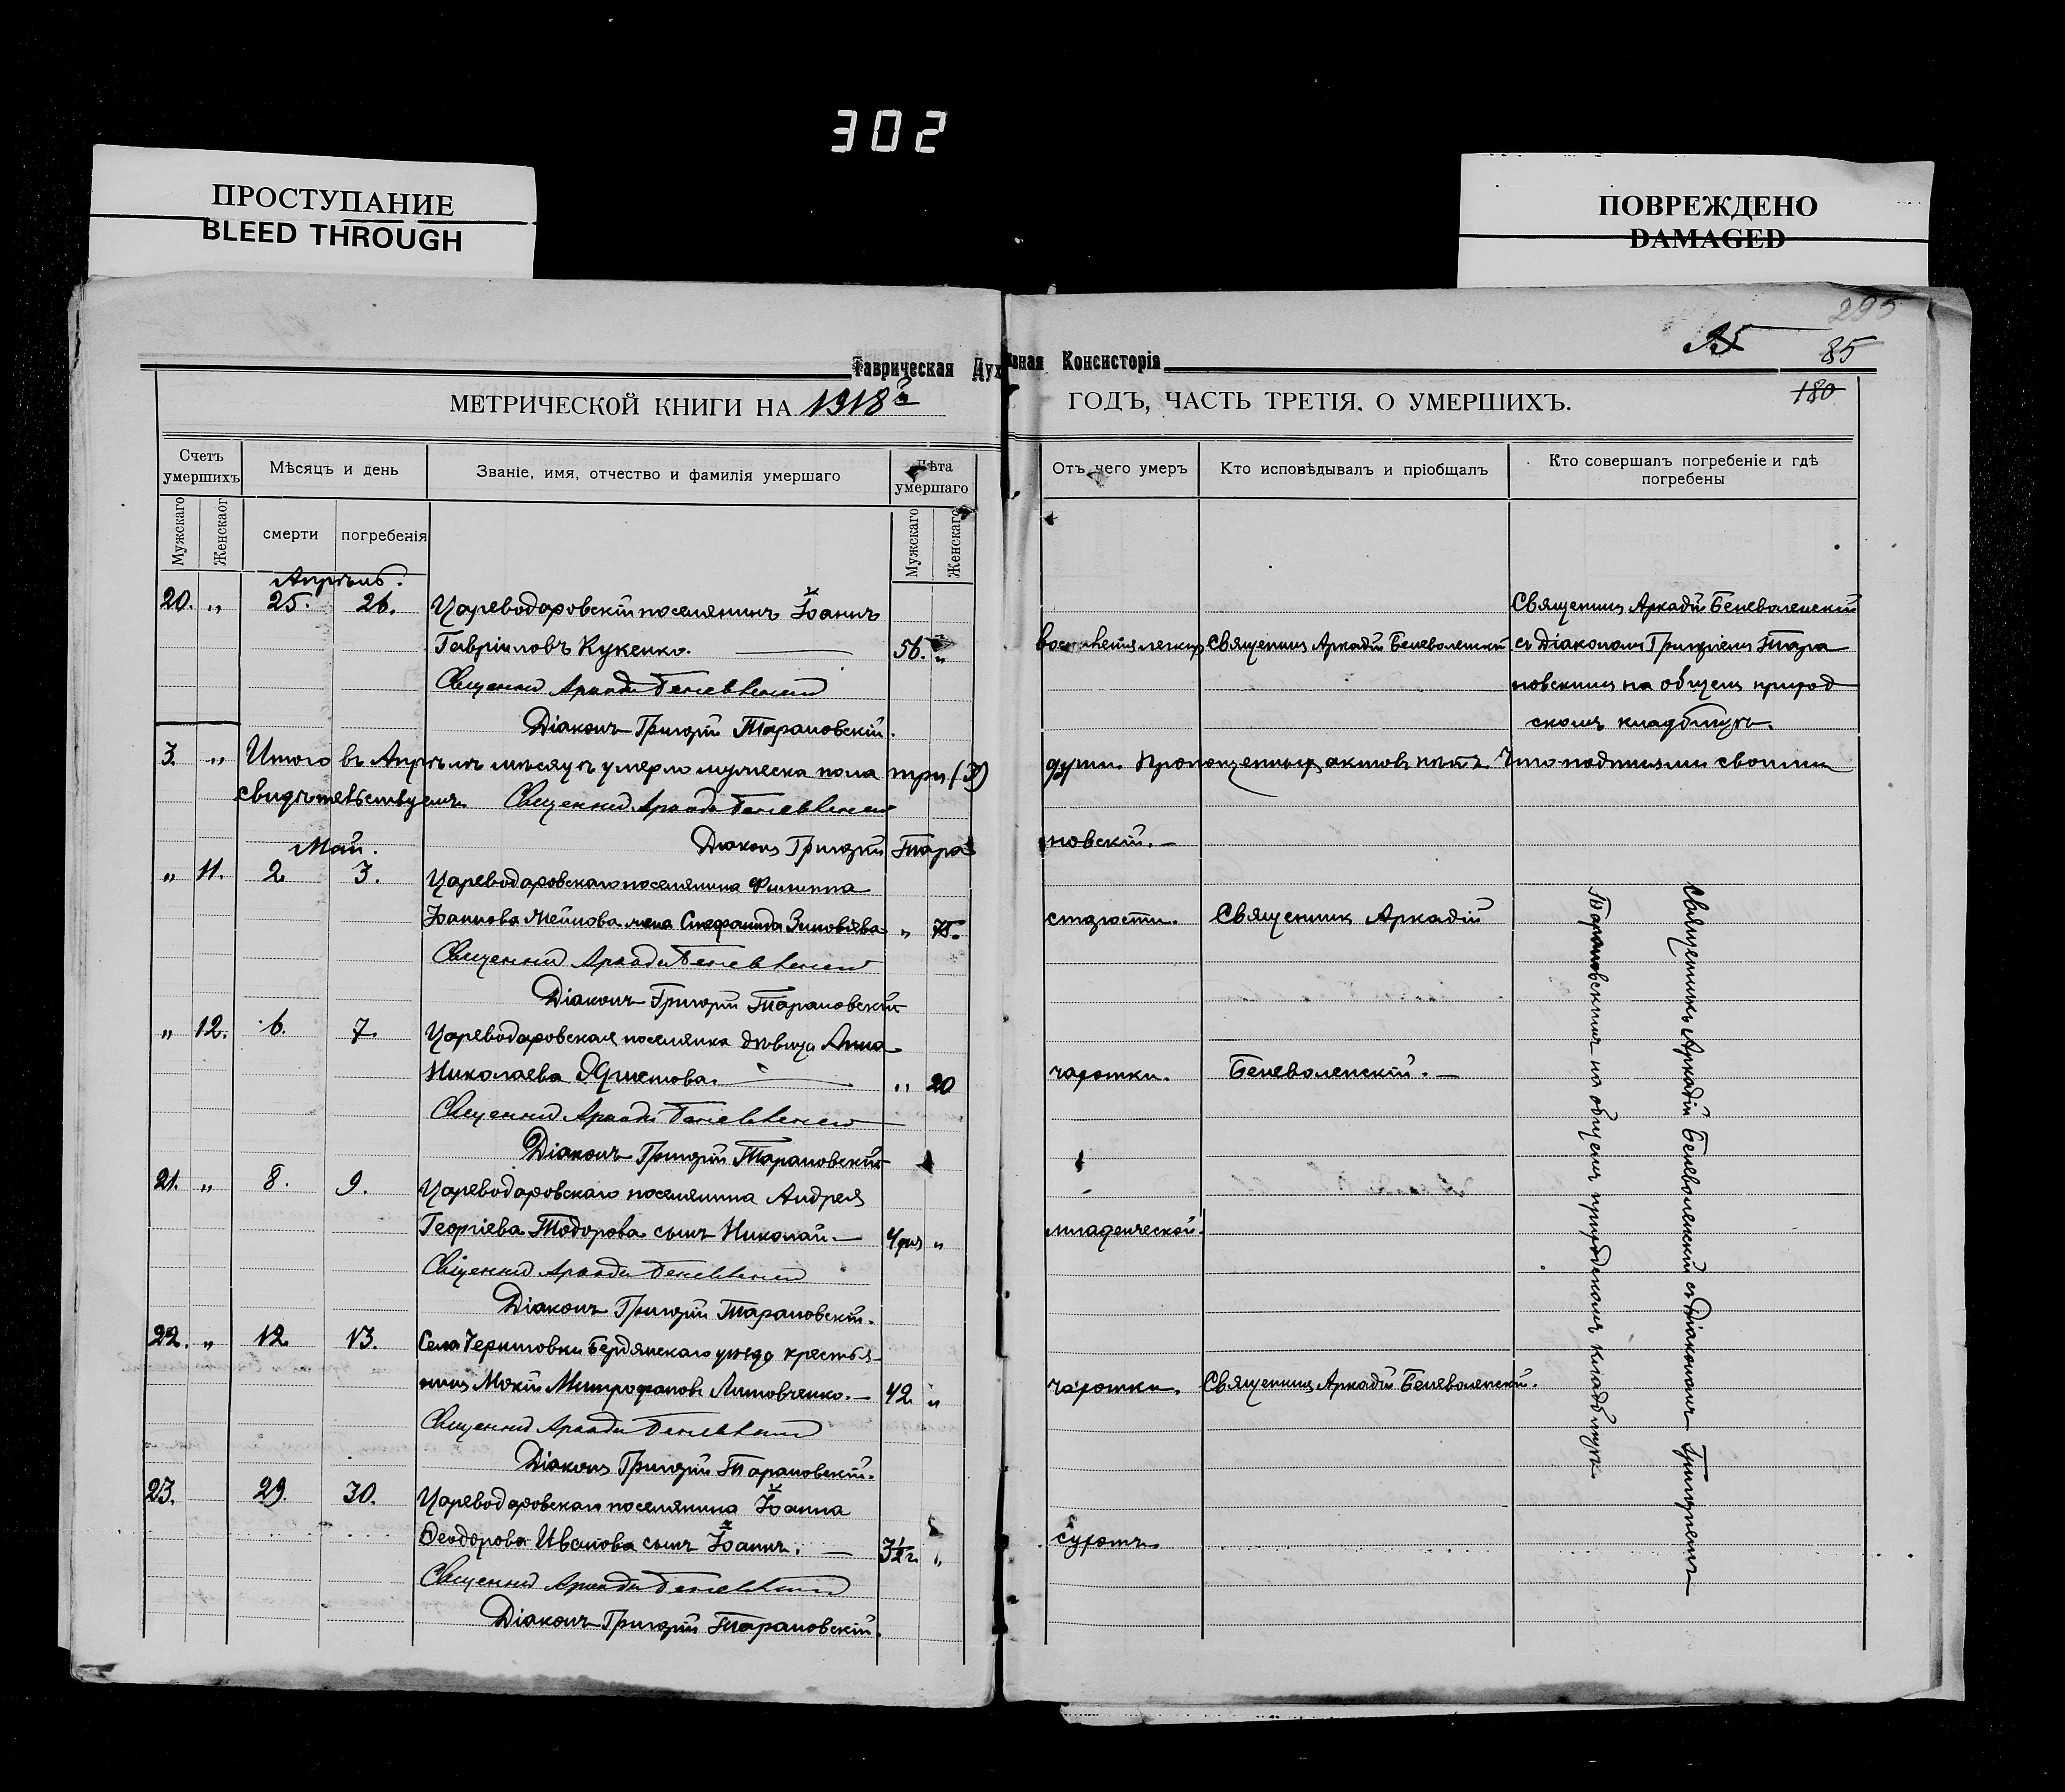 302
ПРОСТУПАНИЕ
BLEED THROUGH
ПОВРЕЖДЕНО
DAMAGED
295
85
180
Таврическая Духовная Консисторія
МЕТРИЧЕСКОЙ КНИГИ НА 1918й ГОДЪ, ЧАСТЬ ТРЕТІЯ. О УМЕРШИХЪ.
Счетъ умершихъ
Мужскаго
Женскаго
Мѣсяцъ и день
смерти
погребенія
Званіе, имя, отчество и фамилія умершаго
Лѣта умершаго
Мужскаго
Женскаго
Отъ чего умеръ
Кто исповѣдывалъ и пріобщалъ
Кто совершалъ погребеніе и гдѣ погребены
Апрѣль.
20. „ 25. 26. Цареводаровскій поселянинъ Іоаннъ
Гавріиловъ Кукенко. 56. „
Священникъ Аркадій Беневоленскій
Діаконъ Григорій Тарановскій.
легкихъ Священникъ Аркадій Беневоленскій
Священникъ Аркадій Беневоленскій
съ Діакономъ Григоріемъ Тара
новскимъ на общемъ приход
скомъ кладбищѣ.
3. „ Итого въ Апрѣлѣ мѣсяцѣ умерло мужеска пола три (3) души. Пропощенныхъ актовъ нѣтъ. Что подписями своими
свидѣтельствуемъ Священникъ Аркадій Беневоленскій
Діаконъ Григорій Тарановскій.
Май.
„ 11. 2 3. Цареводаровскаго поселянина Филиппа
Іоаннова жена Стефанида Зиновіева „ 75.
Священникъ Аркадій Беневоленскій
Діаконъ Григорій Тарановскій
старости. Священникъ Аркадій
„ 12. 6. 7. Цареводаровская поселянка дѣвица Анна
Николаева „ 20
Священникъ Аркадій Беневоленскій
Діаконъ Григорій Тарановскій
чахотки. Беневоленскій.
21. „ 8. 9. Цареводаровскаго поселянина Андрея
Георгіева Тодорова сынъ Николай 4 дня „
Священникъ Аркадій Беневоленскій
Діаконъ Григорій Тарановскій.
младенческой.
22. „ 12 13. Села Черниговки Бердянскаго уѣзда крестья
нинъ Мокій Митрофановъ Литовченко. 42 „
Священникъ Аркадій Беневоленскій
Діаконъ Григорій Тарановскій.
чахотки. Священникъ Аркадій Беневоленскій.
23. 29. 30. Цареводаровскаго поселянина Іоанна
Ѳеодорова Иванова сынъ Іоаннъ. 3½ г. „
Священникъ Аркадій Беневоленскій
Діаконъ Григорій Тарановскій.
сухотъ
Священникъ Аркадій Беневоленскій съ Діакономъ Григоріемъ
Тарановскимъ на общемъ приходскомъ кладбищѣ.